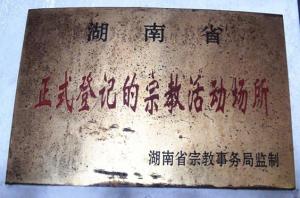 湖南省
正式登记的宗教活动场所
湖南省宗教事务局监制